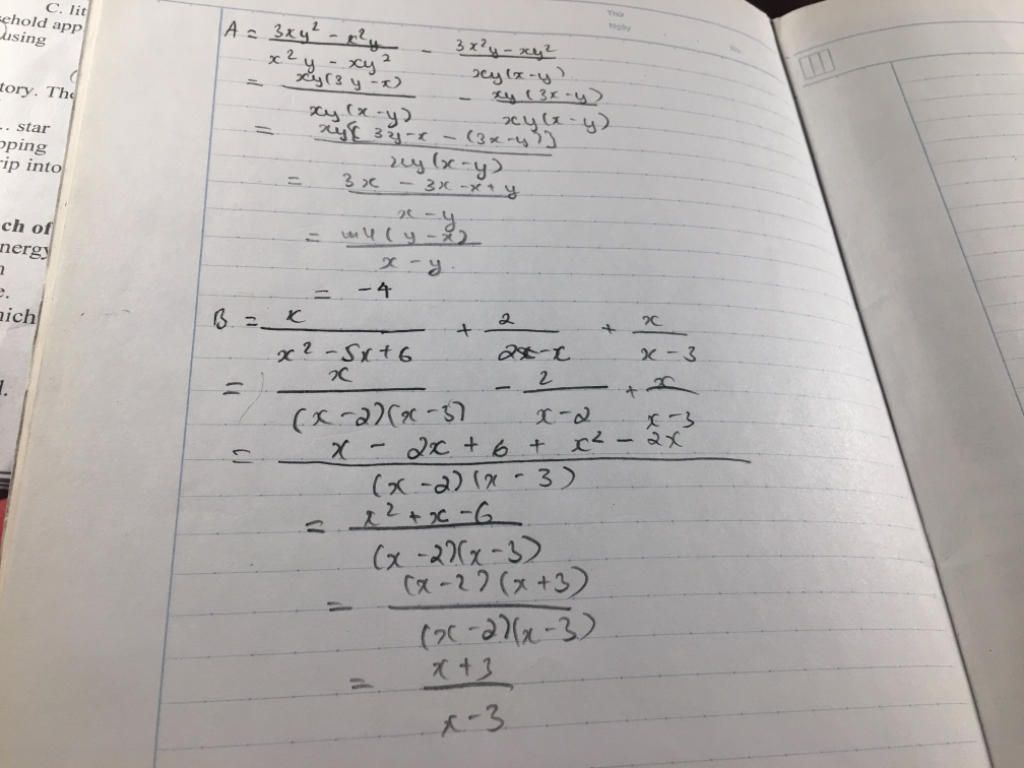 C. lit
ehold app
using
tory. The
.. star
pping
rip into
ch of
nergy
e.
hich
d.
Thứ
Ngày
No
A = (3xy² - x²y)/(x²y - xy²) - (3x²y - xy²)/(xy(x-y))
= (xy(3y-x))/(xy(x-y)) - (xy(3x-y))/(xy(x-y))
= (xy[3y-x-(3x-y)])/(xy(x-y))
= (3x - 3x - x + y)/(x-y)
= (4(y-x))/(x-y)
= -4
B = x/(x² - 5x + 6) + 2/(2-x) + x/(x-3)
= x/((x-2)(x-3)) - 2/(x-2) + x/(x-3)
= (x - 2x + 6 + x² - 2x)/((x-2)(x-3))
= (x² + x - 6)/((x-2)(x-3))
= ((x-2)(x+3))/((x-2)(x-3))
= (x+3)/(x-3)